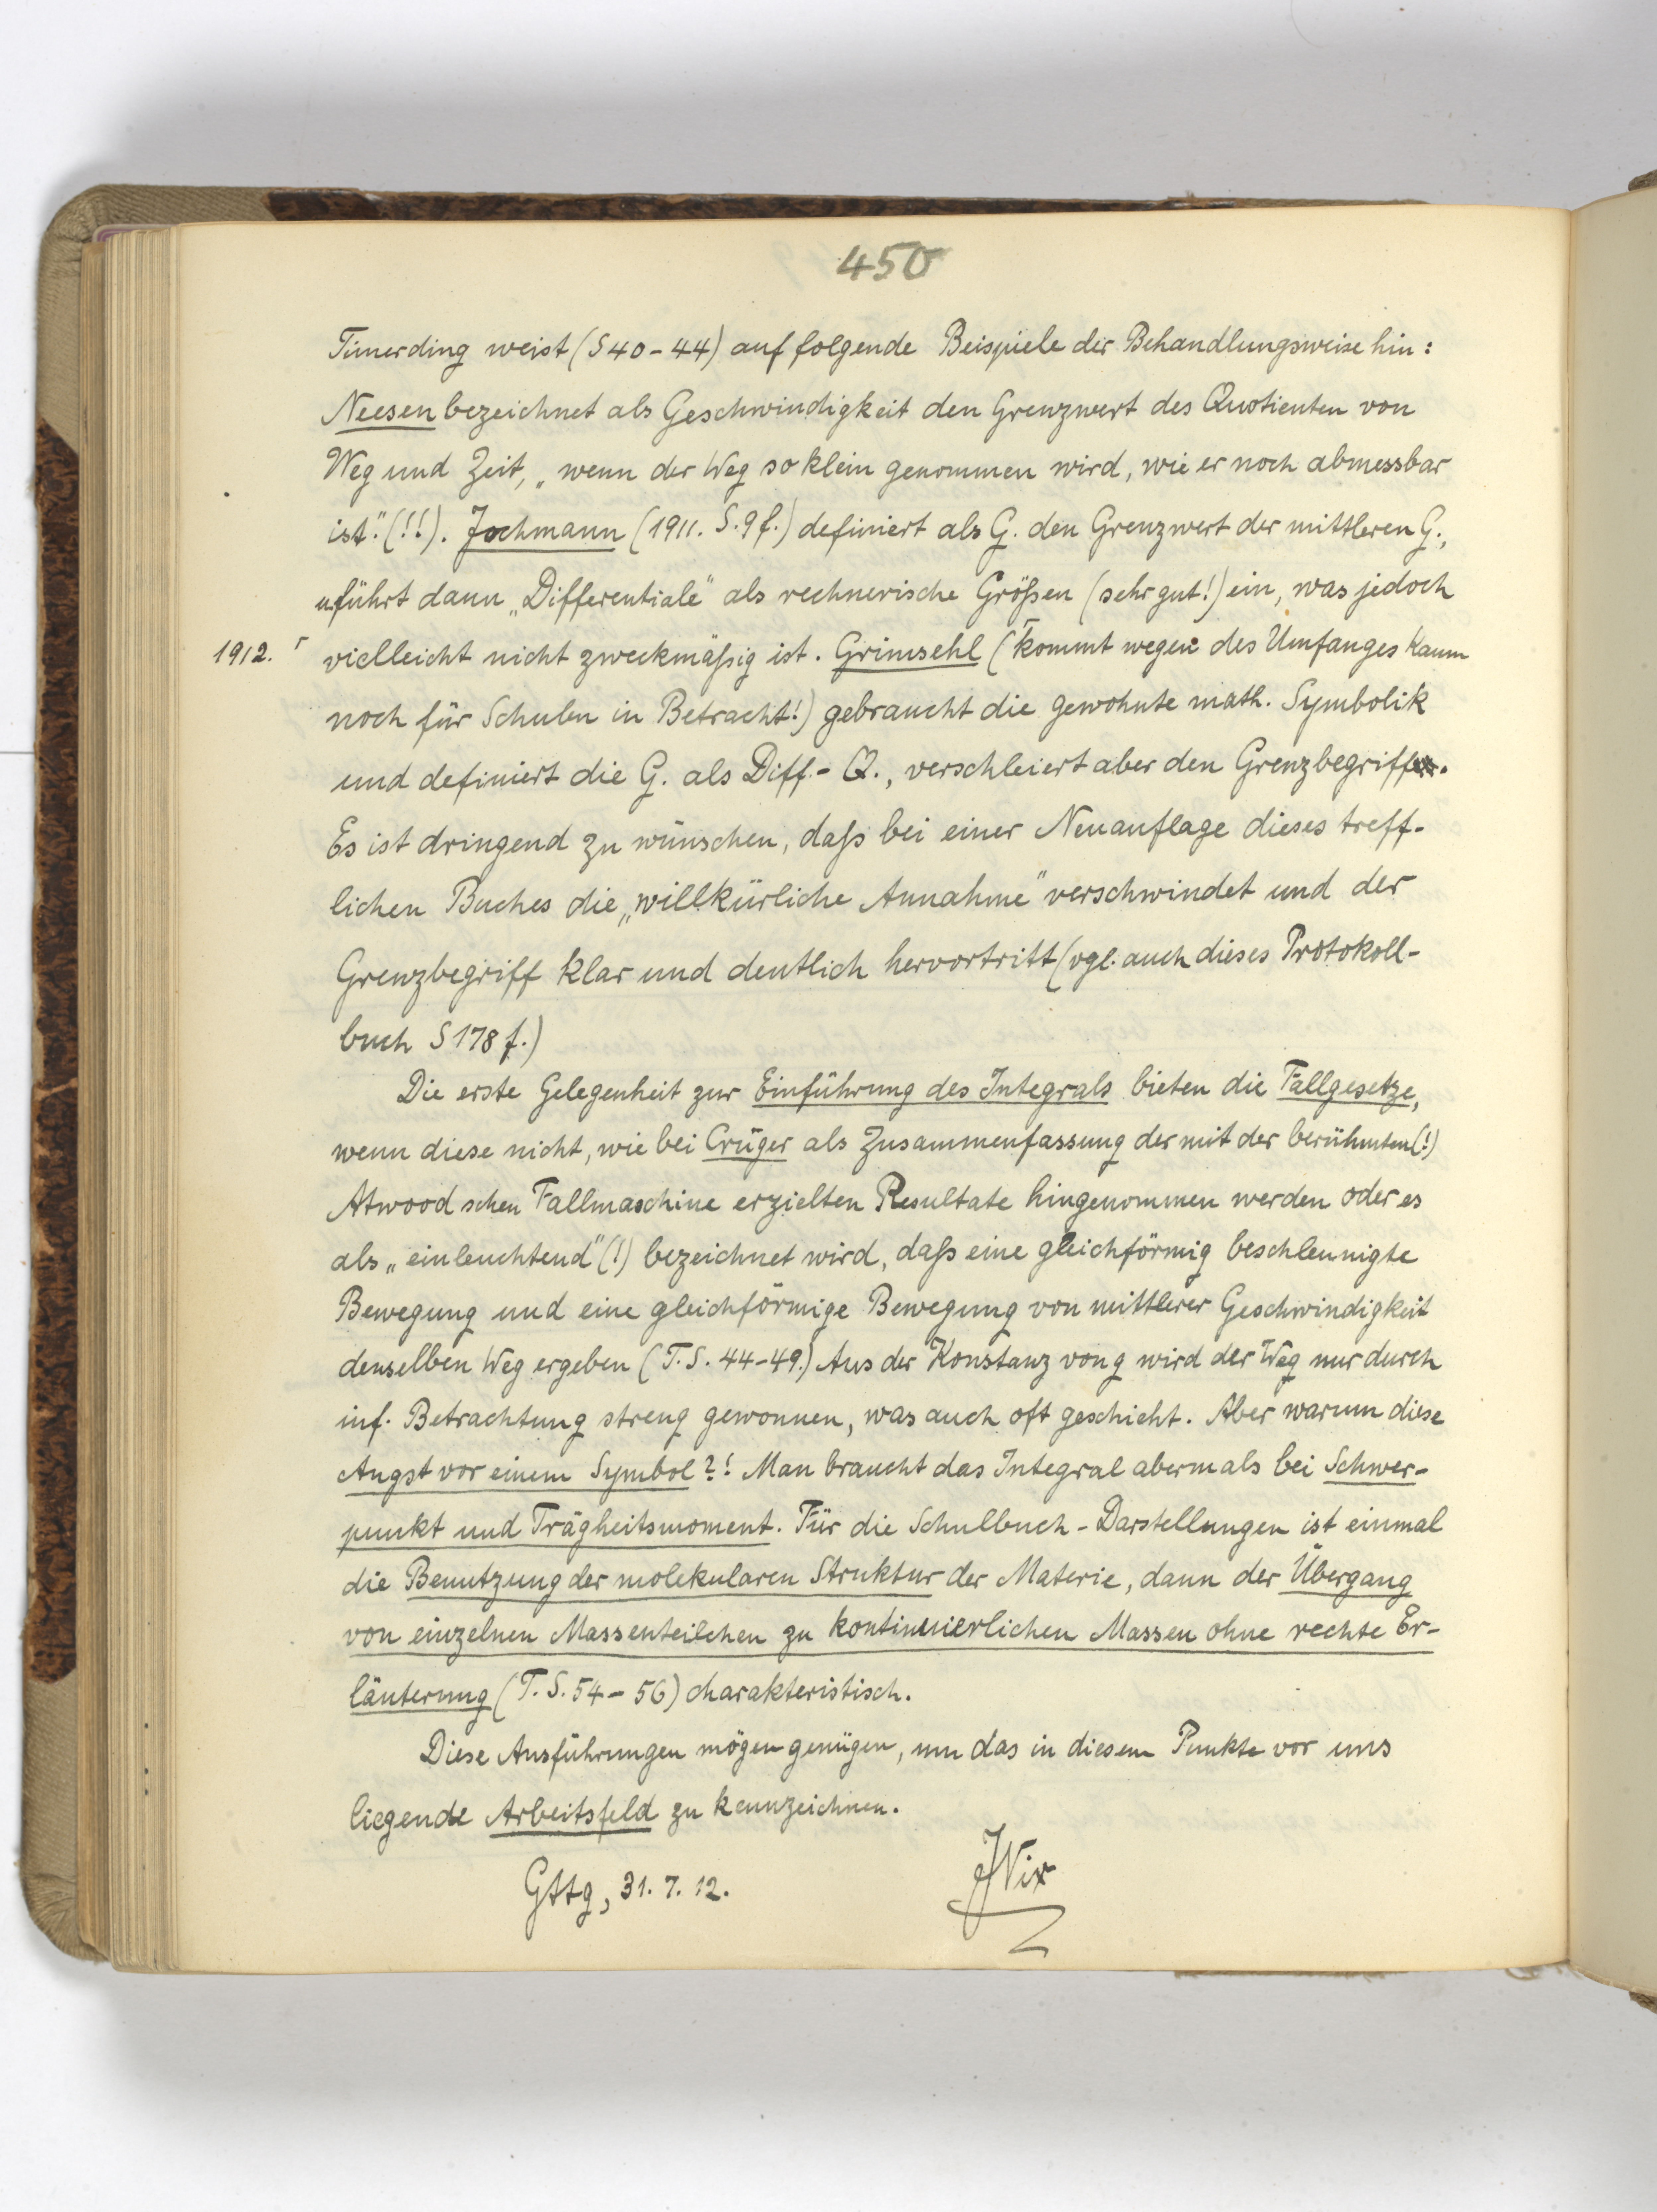 450
Timerding weist (S 40-44) auf folgende Beispiele der Behandlungsweise hin:
Neesen bezeichnet als Geschwindigkeit den Grenzwert des Quotienten von
Weg und Zeit, „wenn der Weg so klein genommen wird, wie er noch abmessbar
ist." (!!). Jochmann (1911. S. 9 f.) definiert als G. den Grenzwert der mittleren G.,
u. führt dann „Differentiale" als rechnerische Größen (sehr gut!) ein, was jedoch
1912. ⌈ vielleicht nicht zweckmäßig ist. Grimsehl (⌈kommt wegen des Umfanges kaum
noch für Schulen in Betracht!) gebraucht die gewohnte math. Symbolik
und definiert die G. als Diff.-Q., verschleiert aber den Grenzbegriff.
Es ist dringend zu wünschen, daß bei einer Neuauflage dieses treff-
lichen Buches die „willkürliche Annahme" verschwindet und der
Grenzbegriff klar und deutlich hervortritt (vgl. auch dieses Protokoll-
buch S 178 f.)
Die erste Gelegenheit zur Einführung des Integrals bieten die Fallgesetze,
wenn diese nicht, wie bei Crüger als Zusammenfassung der mit der berühmten (!)
Atwood schen Fallmaschine erzielten Resultate hingenommen werden oder es
als „einleuchtend" (!) bezeichnet wird, daß eine gleichförmig beschleunigte
Bewegung und eine gleichförmige Bewegung von mittlerer Geschwindigkeit
denselben Weg ergeben (T. S. 44-49.) Aus der Konstanz von g wird der Weg nur durch
inf. Betrachtung streng gewonnen, was auch oft geschieht. Aber warum diese
Angst vor einem Symbol?! Man braucht das Integral abermals bei Schwer-
punkt und Trägheitsmoment. Für die Schulbuch-Darstellungen ist einmal
die Benutzung der molekularen Struktur der Materie, dann der Übergang
von einzelnen Massenteilchen zu kontinuierlichen Massen ohne rechte Er-
läuterung (T. S. 54-56) charakteristisch.
Diese Ausführungen mögen genügen, um das in diesem Punkte vor uns
liegende Arbeitsfeld zu kennzeichnen.
Gttg, 31. 7. 12.
JNix